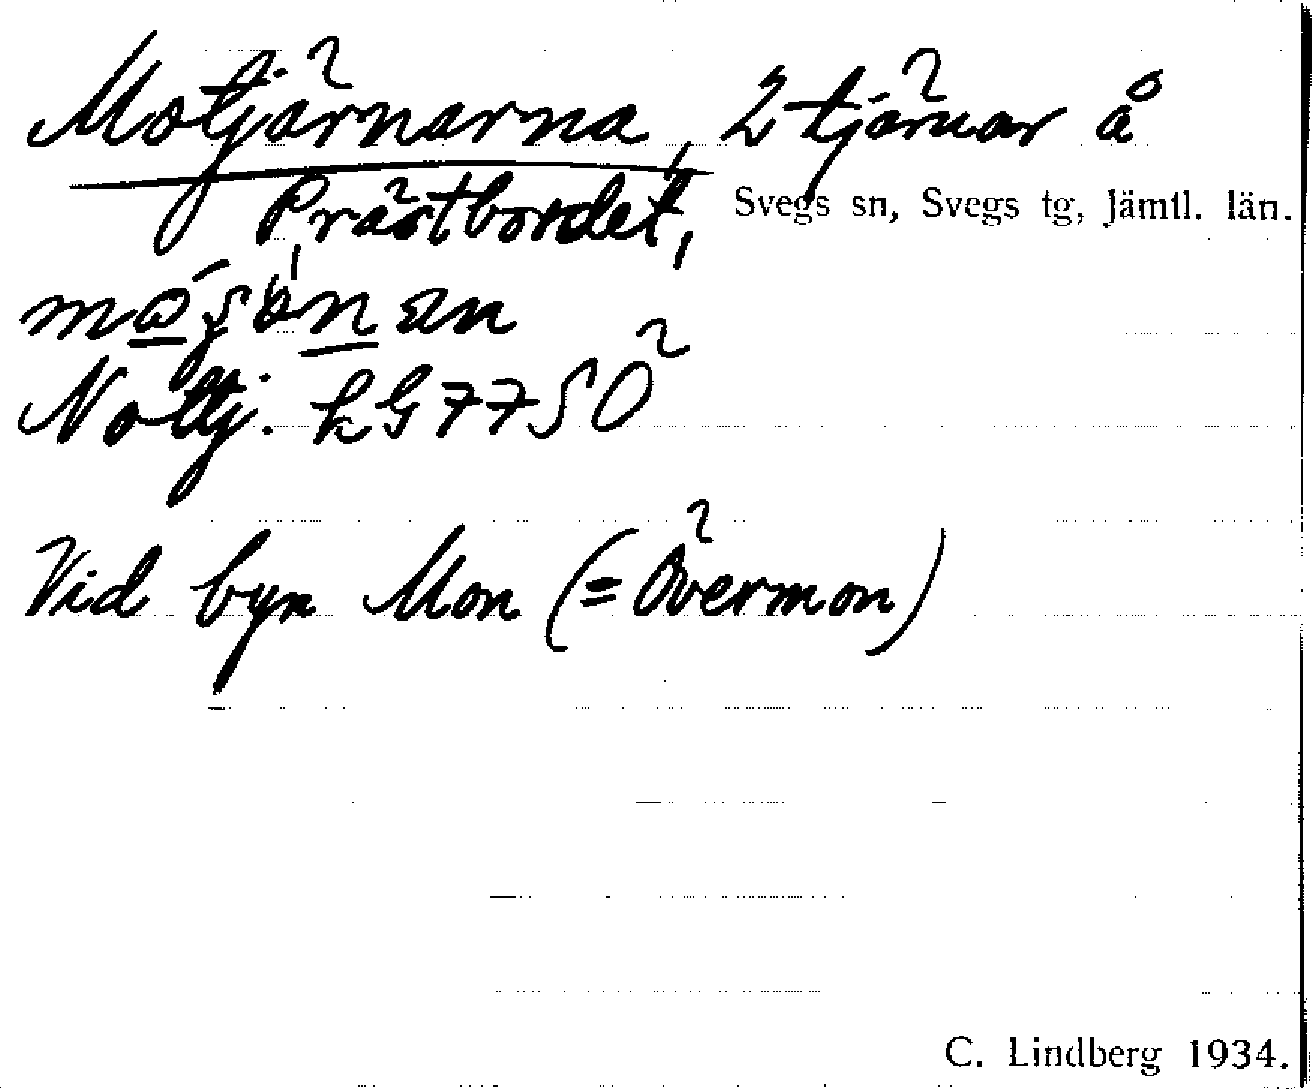 Motjärnarna, 2 tjärnar å
Prästbordet,
Svegs sn, Svegs tg, Jämtl. län.
Vid byn Mon (= Övermon)
C. Lindberg 1934.